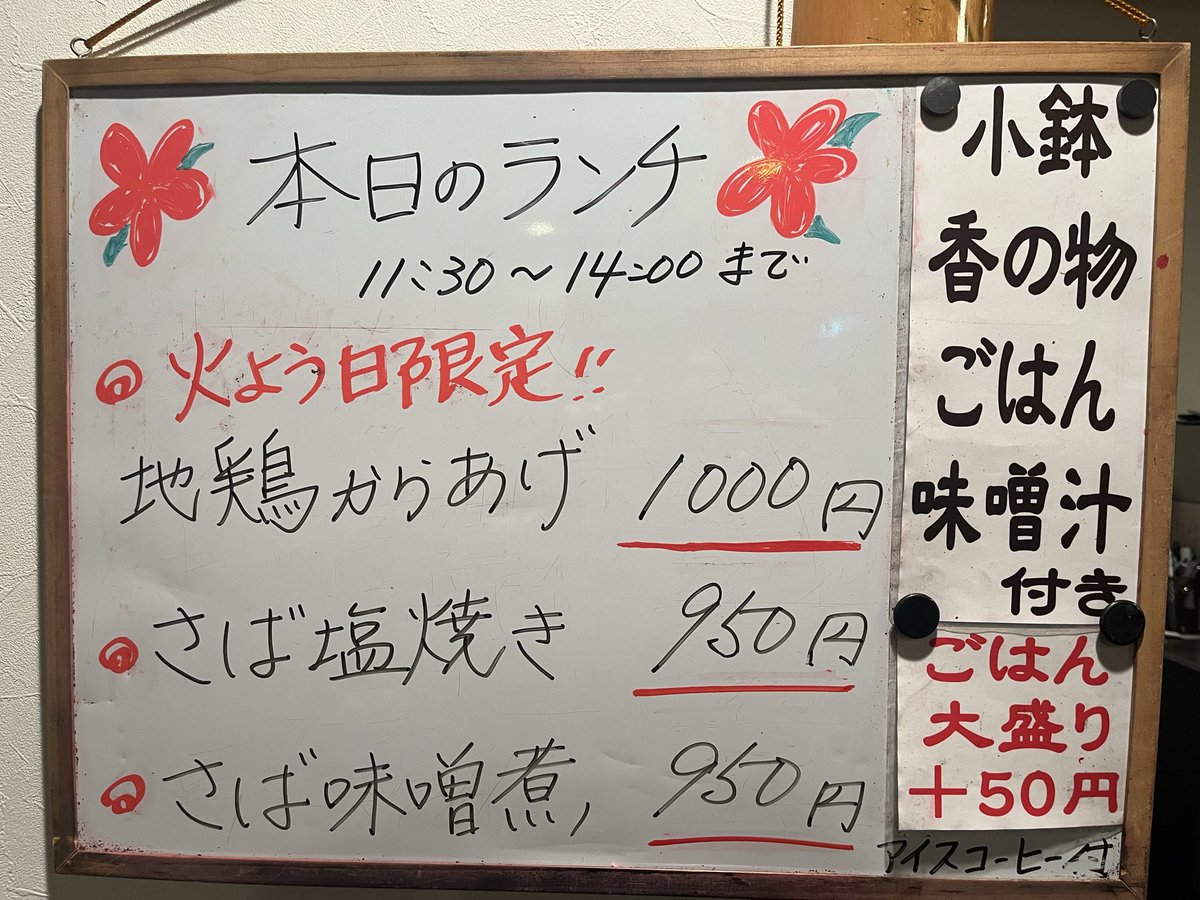 本日のランチ
11:30～14:00まで
火よう日限定!!
地鶏からあげ 1000円
さば塩焼き 950円
さば味噌煮 950円
小鉢
香の物
ごはん
味噌汁
付き
ごはん
大盛り
+50円
アイスコーヒー付